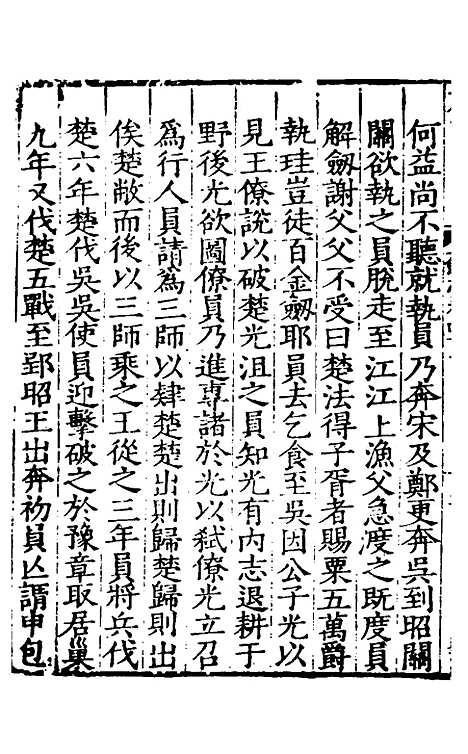 何益尚不聽就執員乃奔宋及鄭更奔吳到昭關
關欲執之員脫走至江江上漁父急度之既度員
解劔謝父父不受曰楚法得子胥者賜粟五萬爵
執珪豈徒百金劔耶員去乞食至吳因公子光以
見王僚說以破楚光沮之員知光有内志退耕于
野後尤欲圖僚員乃進專諸於光以弑僚光立召
爲行人員請爲三師以肄楚楚出則歸楚歸則出
俟楚敝而後以三師乘之王從之三年員將兵伐
楚六年楚伐吳吳使員迎擊破之於豫章取居巢
九年又伐楚五戰至郢昭王出奔初員亾謂申包